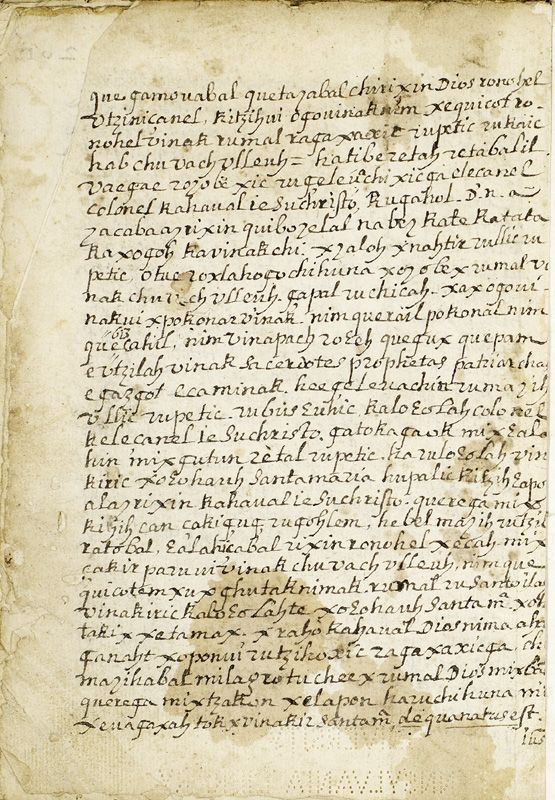 que gamovabal quetazabal chirixin Dios ronohel
vtzinicanel, kitzihvi ogovinak nim xequicot ro-
nohel vinak rumal raga xaxic rupetic rukaic
hab chuvach vlleuh = hatibe retah retabalil
vaegae royobexic rugeleuachixicga elecanel
colonel kahaual iesuchristo, kugahol. D. n. a
zacaba azrixin quiboyelal nabey kate katata
kaxogoh kavinakchi. xyaloh xnahtir rullic ru
petic, otuc roxlahogo chihuna xoyobex rumal vi
nak chuvach vlleuh. gapal ruchicah. xaxogovi-
nakvi xpokonar vinak. nim querail pokonal nim
quecakil, nim vinapach rozeh quegux quepam
evtzilah vinak sacerdotes prophetas patriarchas
egazgol ecaminak. heegelevachin rumazih
vllic rupetic. rubiis euhic, kalozolah colonel
kelecanel iesuchristo. gatokagaok mixzala
hun mixgutun retal rupetic. karulozolah vin
kiric xozohauh santamaria hupalic kitzih zapo
alazrixin kahaual iesuchristo. querega mixo
kizih can cakiguq, rugohlem, hebel mazih rutzil
ratobal, zalahicabal rixin ronohel xecah mix
cakir paruvi vinak chuvach vlleuh, nimque
quicotem xux ghutak nimak rumal ru santoila
vinakiric kalozolahte xozohauh santa mª. xoh
takix xetamax. x rahó kahaual Dios nima aha
ganaht xoponvi rutzihoxic raga xaxicga, ch
mazihabal milagro tucheex rumal Dios mix
querega mixtzakon xelapon haruchihuna mi
xevagaxah tok xvinakir santa mª, de qua natus est.
ius